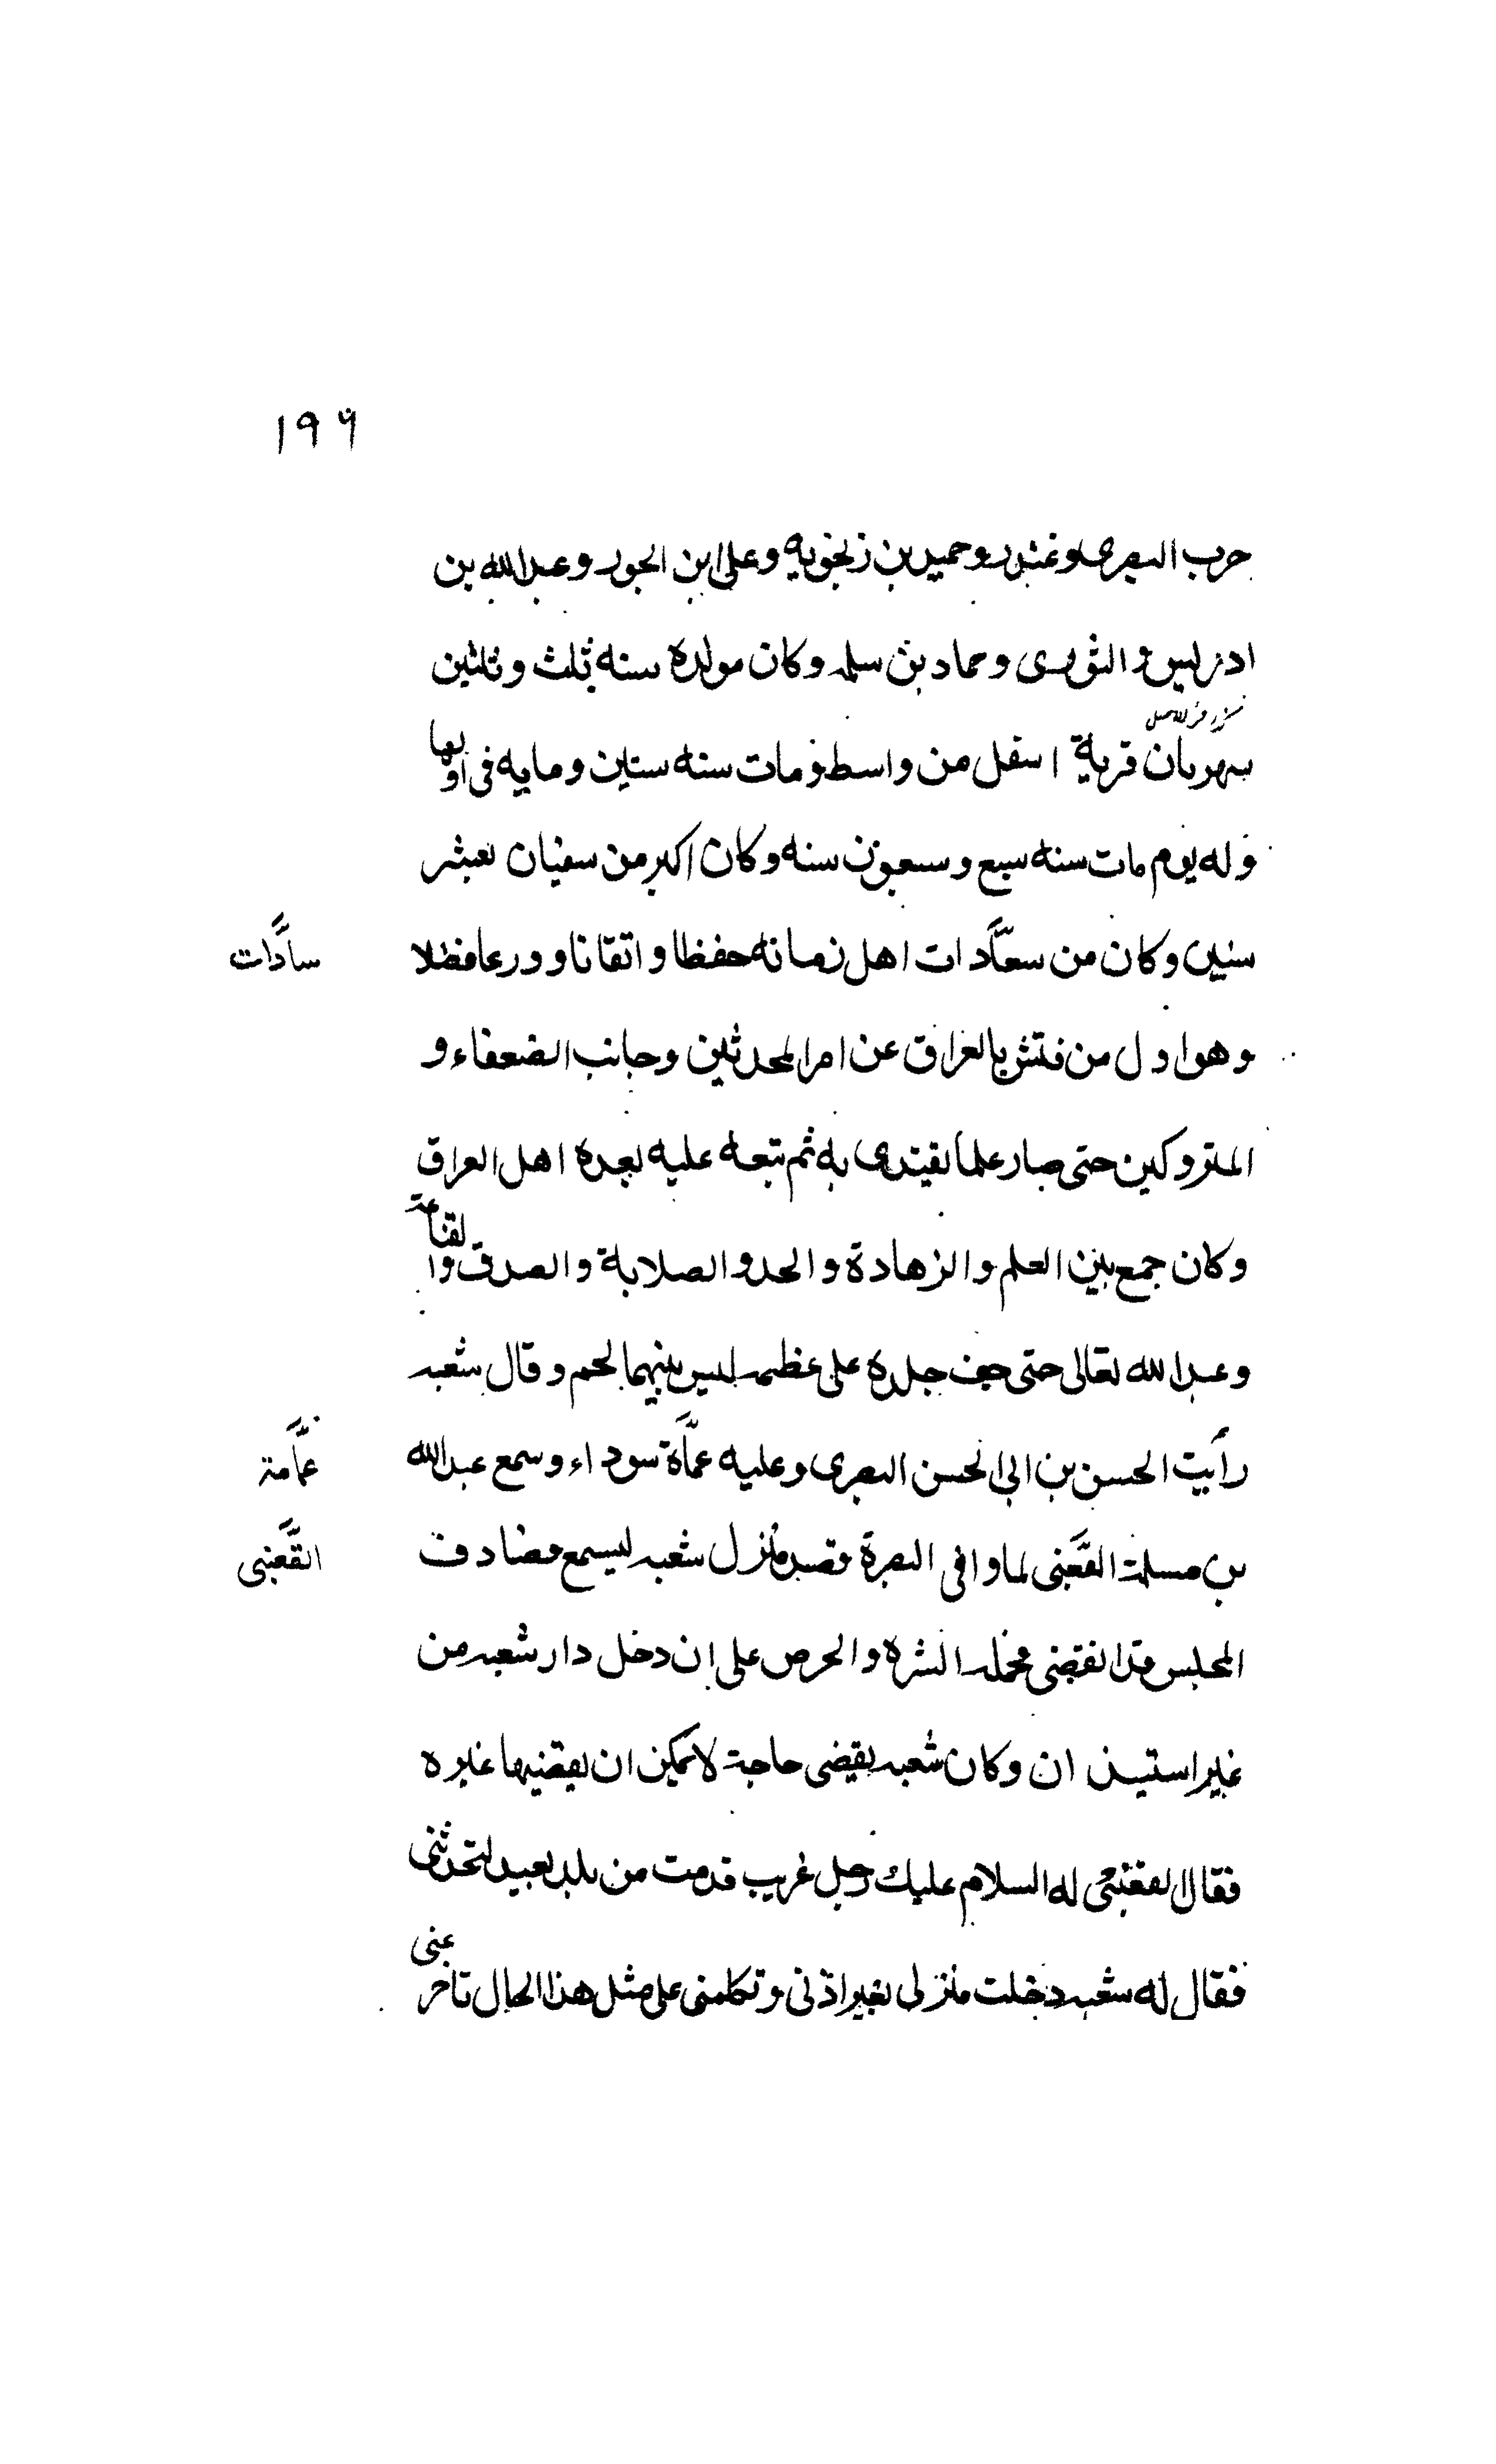 ١٩٦
حرب البصرى وغندر وحميد بن زنجويه وعلى ابن الجور وعبد الله بن
ادريس و الثورى وحماد بن سلمه وكان مولده سنه ثلث وثلثين
بنهربان قرية اسفل من واسط ومات سنه ستين ومايه فى اولها
وله يوم مات سنه سبع وسبعون سنه وكان اكبر من سفيان بعشر
سنين وكان من سعادات اهل زمانه حفظا واتقانا وورعا فضلا
سادات
وهو اول من فتش بالعراق عن امر المحدثين وجانب الضعفاء و
المتروكين حتى صار علما يقتدى به ثم تبعه عليه بعده اهل العراق
وكان جمع بين العلم والزهادة والجد والصلابة والصدق والقناعة
وعبد الله تعالى حتى جف جلده على عظمه ليس بينهما لحم وقال شعبه
رأيت الحسن بن ابى الحسن البصرى وعليه عماة سوداء وسمع عبد الله
عمامة
بن مسلمة القعنبى لما وافى البصرة قصد منزل شعبه ليسمع فصادف
القعنبى
المجلس قد انقضى فحمله الشره والحرص على ان دخل دار شعبه من
غير استيذان وكان شعبه يقضى حاجة لا يمكن ان يقضيها غيره
فقال القعنبى له السلام عليك رجل غريب قدمت من بلد بعيد لتحدثنى
فقال له شعبه دخلت منزلى بغير اذنى وتكلمنى على مثل هذا الحال تاخر عنى